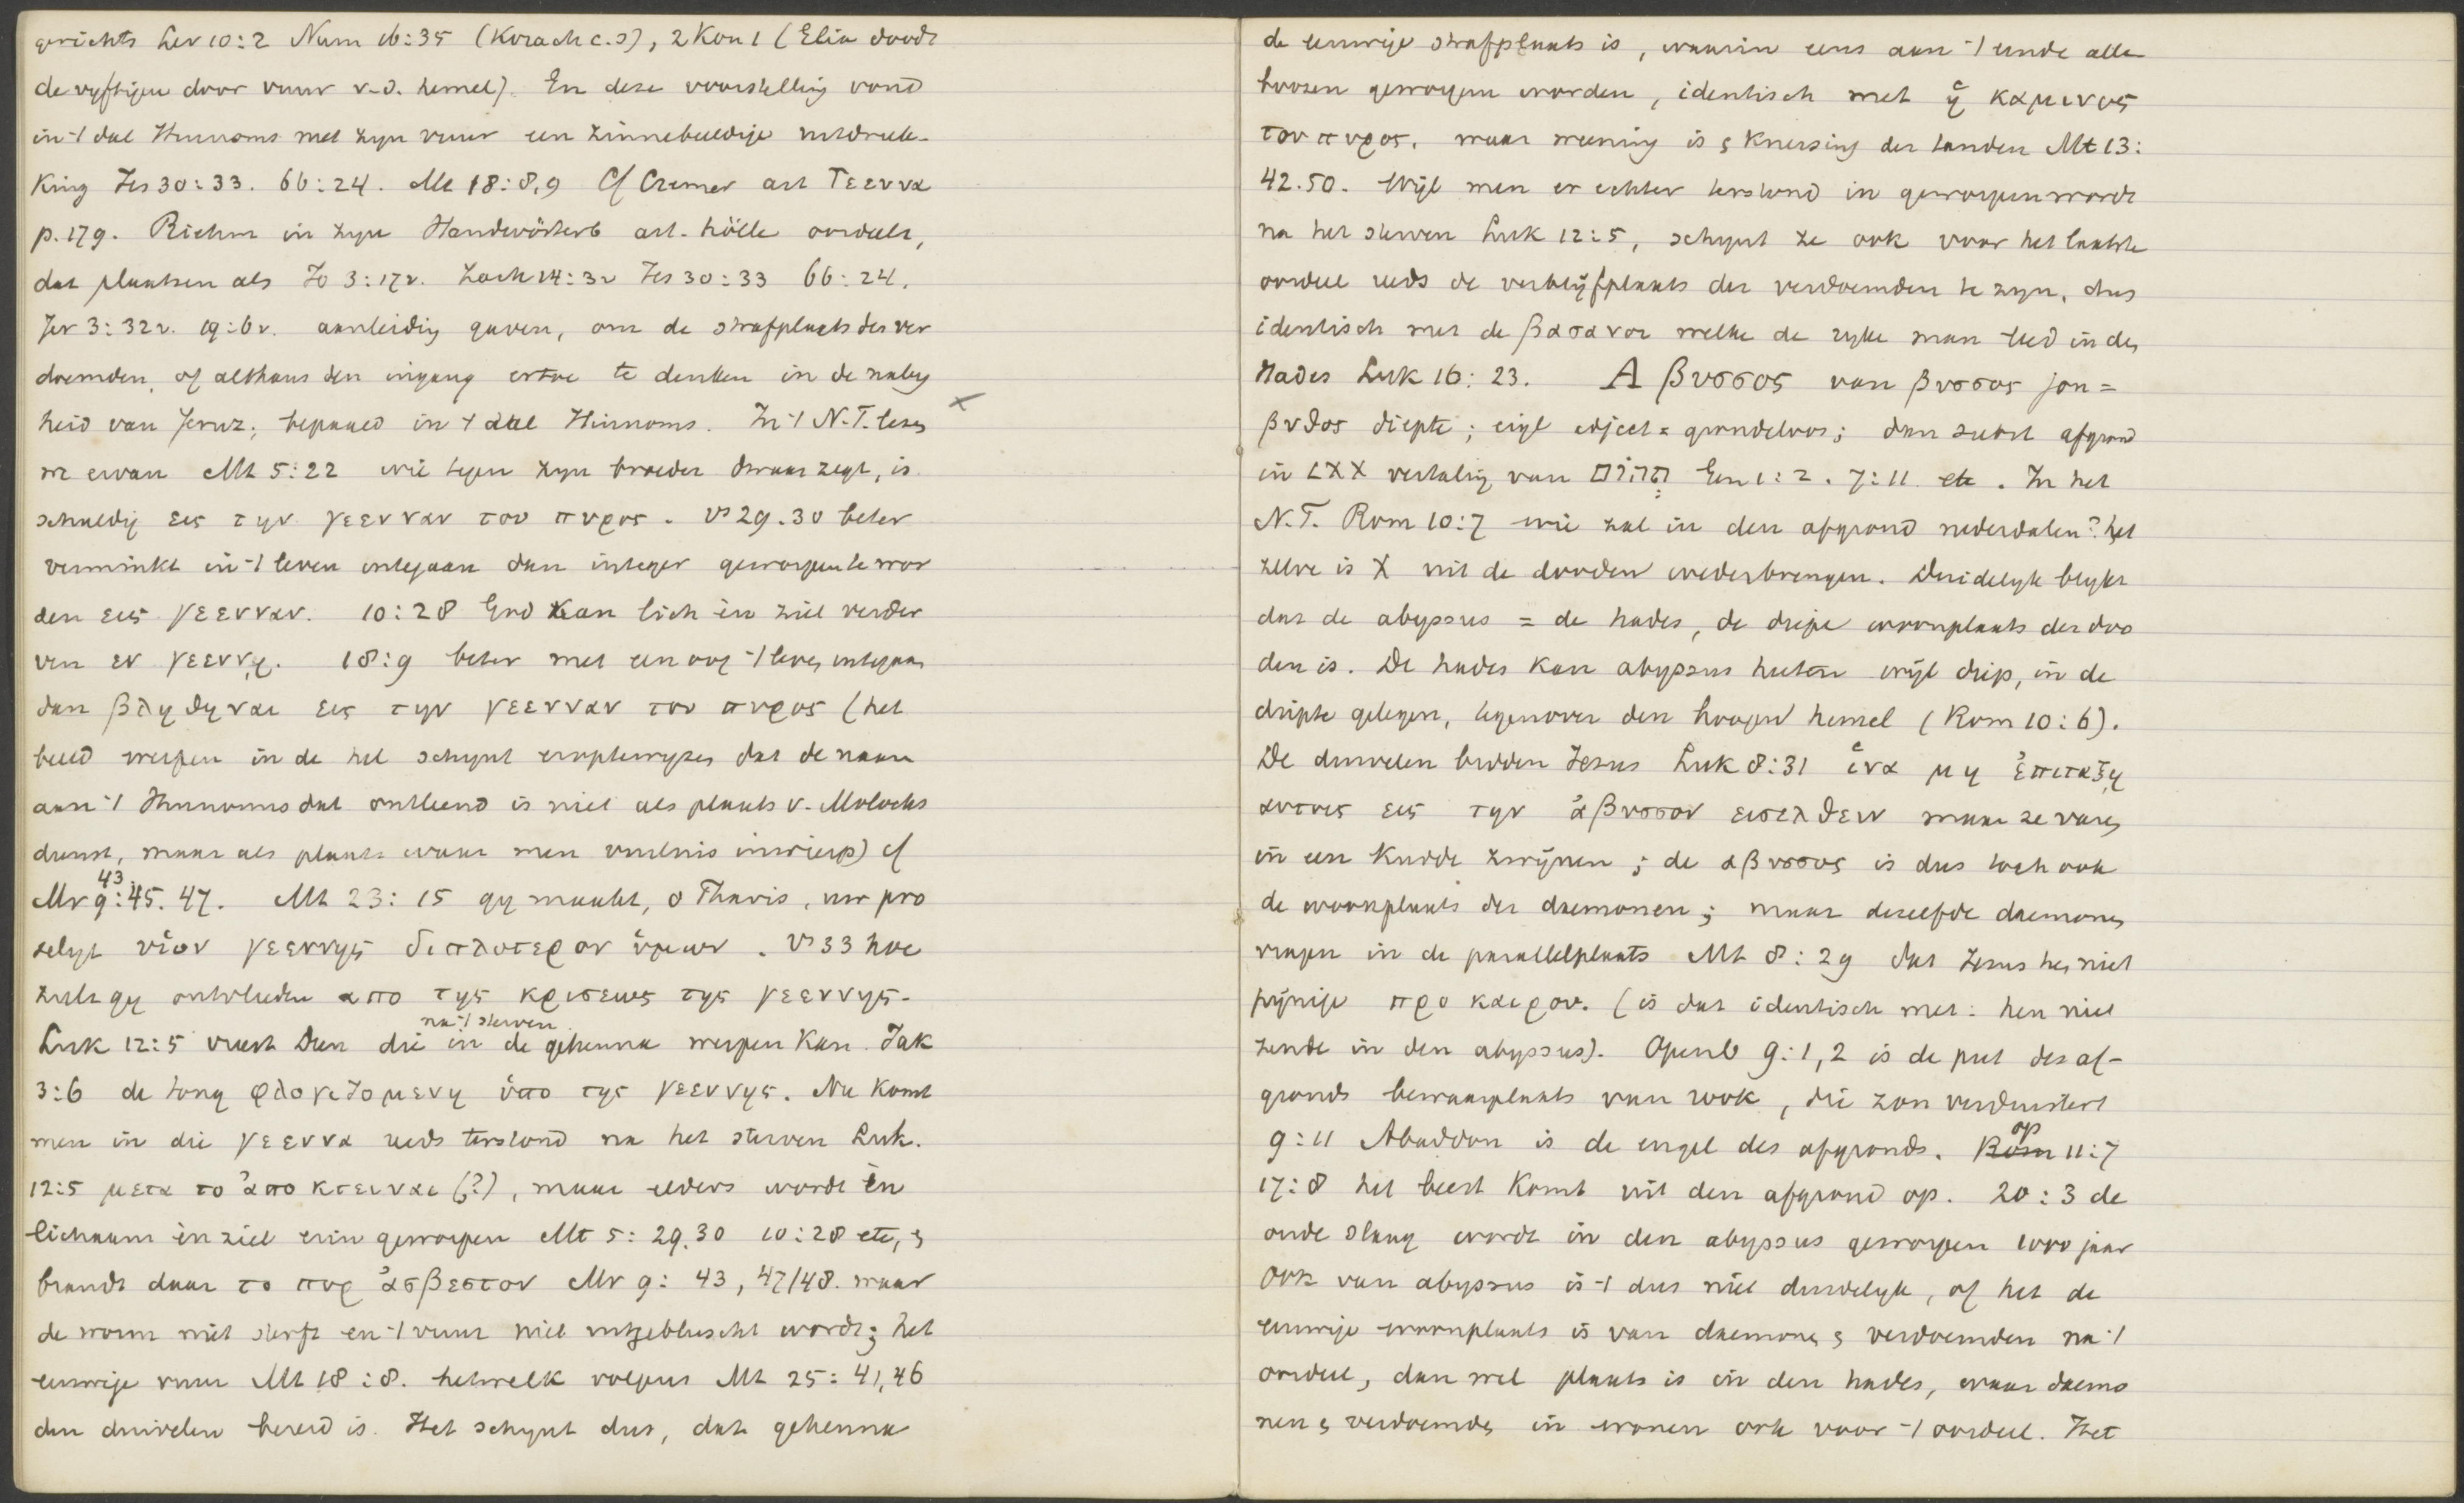 gerichts Lev 10:2 Num 16:35 (Korach c.s), 2 Kon 1 (Elia doodt
de vyftigen door vuur v.d. hemel). En deze voorstelling vond
in 't dal Hinnoms met zyn vuur een zinnebeeldige uitdruk-
king Jes 30:33. 66:24. Mt 18:8,9 Cf Cremer art Γεεννα
p. 179. Riehm in zyn Handwörterb art. hölle oordeelt,
dat plaatsen als Jo 3:17v. Zach 14:3v Jes 30:33 66:24.
Jer 3:32v. 19:6v. aanleiding gaven, om de strafplaats der ver
doemden, of althans den ingang ertoe te denken in de naby
heid van Jeruz; bepaald in 't dal Hinnoms. In 't N.T. lezen
we ervan Mt 5:22 wie tegen zyn broeder dwaas zegt, is
schuldig εις την γεενναν του πυρος. vs 29.30 beter
verminkt in 't leven ontegaan dan integer geworpen te wor
den εις γεενναν. 10:28 God kan lich èn ziel verder
ven εν γεεννῃ. 18:9 beter met een oog 't leven integaan
dan βληθηναι εις την γεενναν του πυρος (het
beeld werpen in de hel schynt erop te wyzen dat de naam
aan 't Hinnomsdal ontleend is niet als plaats v. Molochs
dienst, maar als plaats waar men vuilnis inwierp) cf
Mr 9:43.45.47. Mt 23:15 gy maakt, o Phariz, uw pro
selyt υἱον γεεννης διπλοτερον ὑμων. vs 33 hoe
zult gy ontvlieden απο της κρισεως της γεεννης.
Luk 12:5 vreest Dien die na 't sterven in de gehenna werpen kan. Jak
3:6 de tong φλογιζομενη ὑπο της γεεννης. Nu komt
men in die γεεννα reeds terstond na het sterven Luk.
12:5 μετα το ἀποκτειναι (?), maar elders wordt èn
lichaam èn ziel erin geworpen Mt 5:29.30 10:28 etc, en
brandt daar το πυρ ἀσβεστον Mr 9:43, 47/48. waar
de worm niet sterft en 't vuur niet uitgebluscht wordt; het
eeuwige vuur Mt 18:8. hetwelk volgens Mt 25:41,46
den duivelen bereid is. Het schynt dus, dat gehenna
de eeuwige strafplaats is, waarin eens aan 't einde alle
boozen geworpen worden, identisch met ἡ καμινος
του πυρος, waar weening is en knersing der tanden Mt 13:
42.50. Wijl men er echter terstond in geworpen wordt
na het sterven Luk 12:5, schynt ze ook voor het laatste
oordeel reeds de verblijfplaats der verdoemden te zyn, dus
identisch met de βασανοι welke de ryke man leed in den
Hades Luk 16:23. Αβυσσος van βυσσος jon =
βυθος diepte; eigl adject = grondeloos; dan subst afgrond
in LXX vertaling van תהום Gen 1:2. 7:11 etc. In het
N.T. Rom 10:7 wie zal in den afgrond nederdalen? het
zelve is X uit de dooden wederbrengen. Duidelyk blykt
dat de abyssus = de hades, de diepe woonplaats der doo
den is. De hades kan abyssus heeten wijl diep, in de
diepte gelegen, tegenover den hoogen hemel (Rom 10:6).
De duivelen bidden Jezus Luk 8:31 ἱνα μη ἐπιταξῃ
αυτοις εις την ἀβυσσον εισελθειν maar ze varen
in een kudde zwijnen; de αβυσσος is dus toch ook
de woonplaats der daemonen; maar dezelfde daemonen
vragen in de parallelplaats Mt 8:29 dat Jezus hen niet
pijnige προ καιρου. (is dat identisch met: hen niet
zende in den abyssus). Openb 9:1,2 is de put des af-
gronds bewaarplaats van rook, die zon verduistert
9:11 Abaddon is de engel des afgronds. Op 11:7
17:8 het beest komt uit den afgrond op. 20:3 de
oude slang wordt in den abyssus geworpen 1000 jaar
Ook van abyssus is 't dus niet duidelyk, of het de
eeuwige woonplaats is van daemonen en verdoemden na 't
oordeel, dan wel plaats is in den hades, waar daemo
nen en verdoemden in wonen ook voor 't oordeel. Het